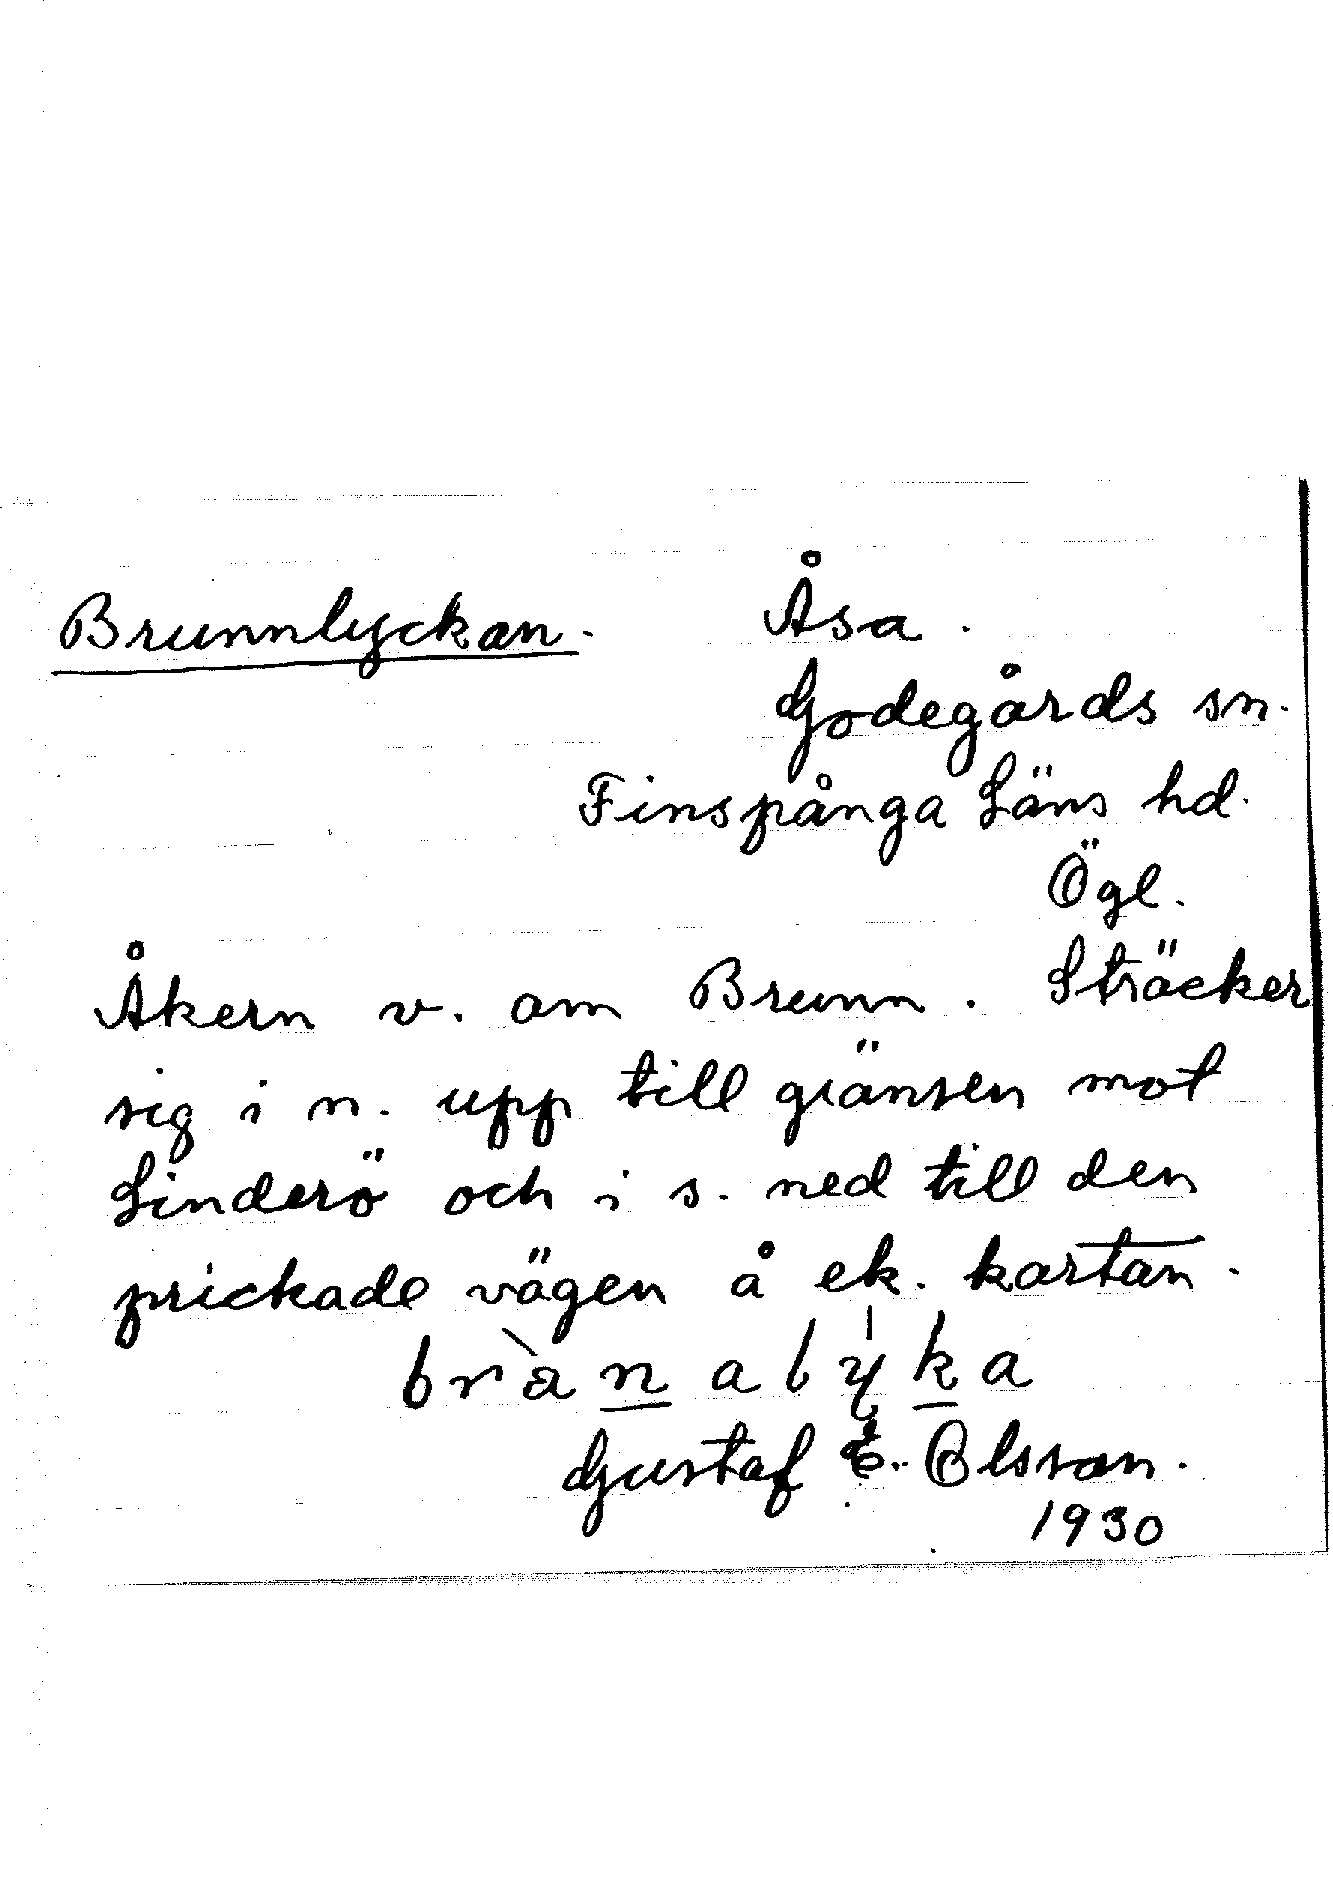 Brunnlyckan. Åsa.
Godegårds sn.
Finspånga Läns hd.
Ögl.
Åkern v. om Brunn. Sträcker
sig i n. upp till gränsen mot
Linderö och i s. ned till den
prickade vägen å ek. kartan.
Gustaf E. Olsson.
1930